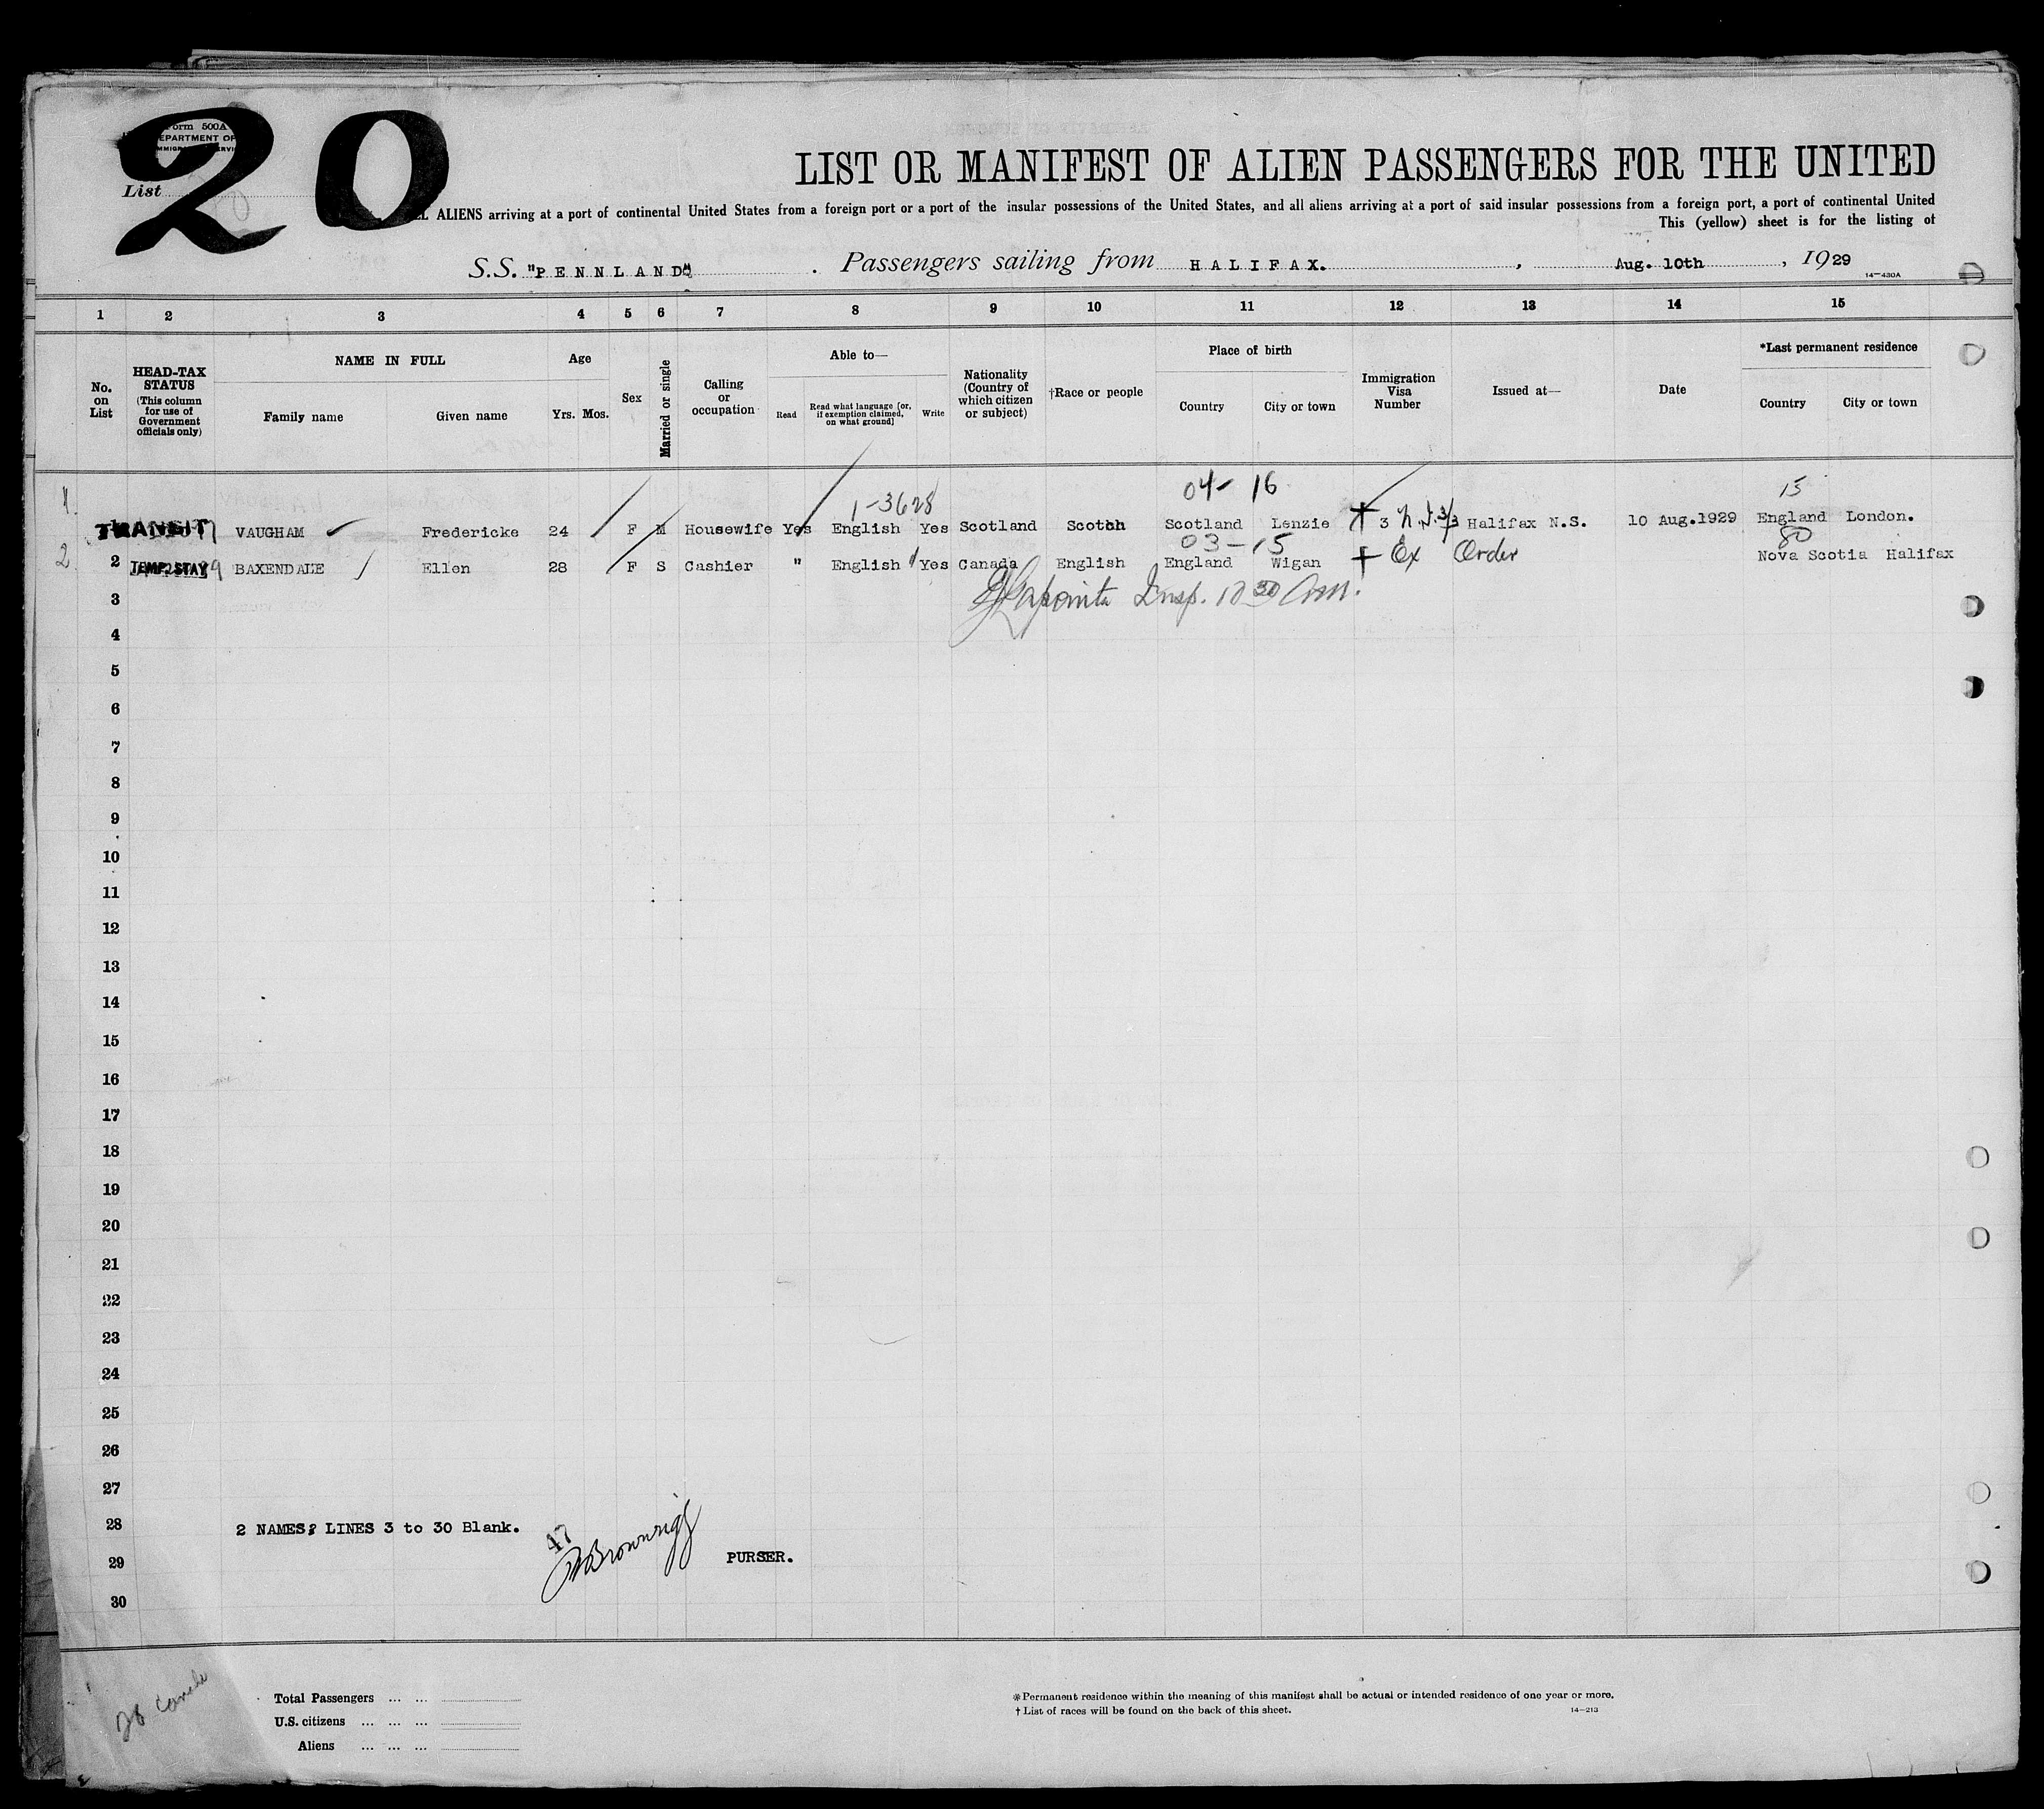 20
Form 500A
DEPARTMENT OF
List
LIST OR MANIFEST OF ALIEN PASSENGERS FOR THE UNITED
ALIENS arriving at a port of continental United States from a foreign port or a port of the insular possessions of the United States, and all aliens arriving at a port of said insular possessions from a foreign port, a port of continental United
This (yellow) sheet is for the listing of
S.S. "PENNLAND" . Passengers sailing from HALIFAX. , Aug. 10th , 1929
14-430A
1 2 3 4 5 6 7 8 9 10 11 12 13 14 15
No. on List
HEAD-TAX STATUS (This column for use of Government officials only)
NAME IN FULL
Family name Given name
Age
Yrs. Mos.
Sex
Married or single
Calling or occupation
Able to—
Read Read what language [or, if exemption claimed, on what ground] Write
Nationality (Country of which citizen or subject)
†Race or people
Place of birth
Country City or town
Immigration Visa Number
Issued at—
Date
*Last permanent residence
Country City or town
1 1-3628 04-16 15
TRANSIT VAUGHAM Fredericke 24 F M Housewife Yes English Yes Scotland Scotch Scotland Lenzie 3 Halifax N.S. 10 Aug.1929 England London.
2 03-15 80
2 TEMP. STAY BAXENDALE Ellen 28 F S Cashier " English Yes Canada English England Wigan Ex Order Nova Scotia Halifax
3 Insp. 10 30 am.
4
5
6
7
8
9
10
11
12
13
14
15
16
17
18
19
20
21
22
23
24
25
26
27
28 2 NAMES; LINES 3 to 30 Blank. 47
29 Brownrigg PURSER.
30
Total Passengers ... ...
U.S. citizens ... ... ...
Aliens ... ... ...
*Permanent residence within the meaning of this manifest shall be actual or intended residence of one year or more.
† List of races will be found on the back of this sheet. 14-213